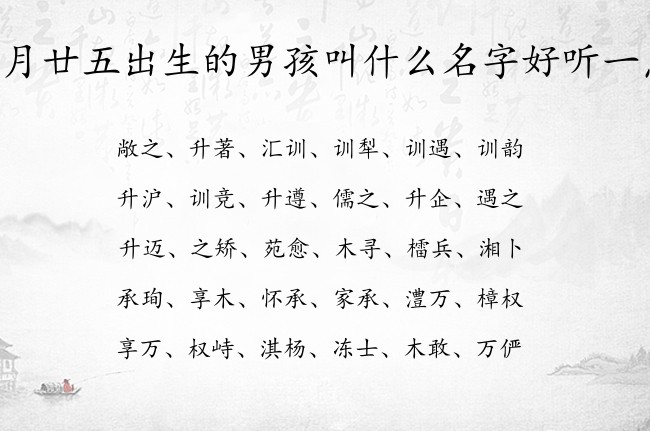 月廿五出生的男孩叫什么名字好听一
敞之、升著、汇训、训犁、训遇、训韵
升沪、训竞、升遵、儒之、升企、遇之
升迈、之矫、苑愈、木寻、檑兵、湘卜
承珣、享木、怀承、家承、澧万、樟权
享万、权峙、淇杨、冻士、木敢、万俨